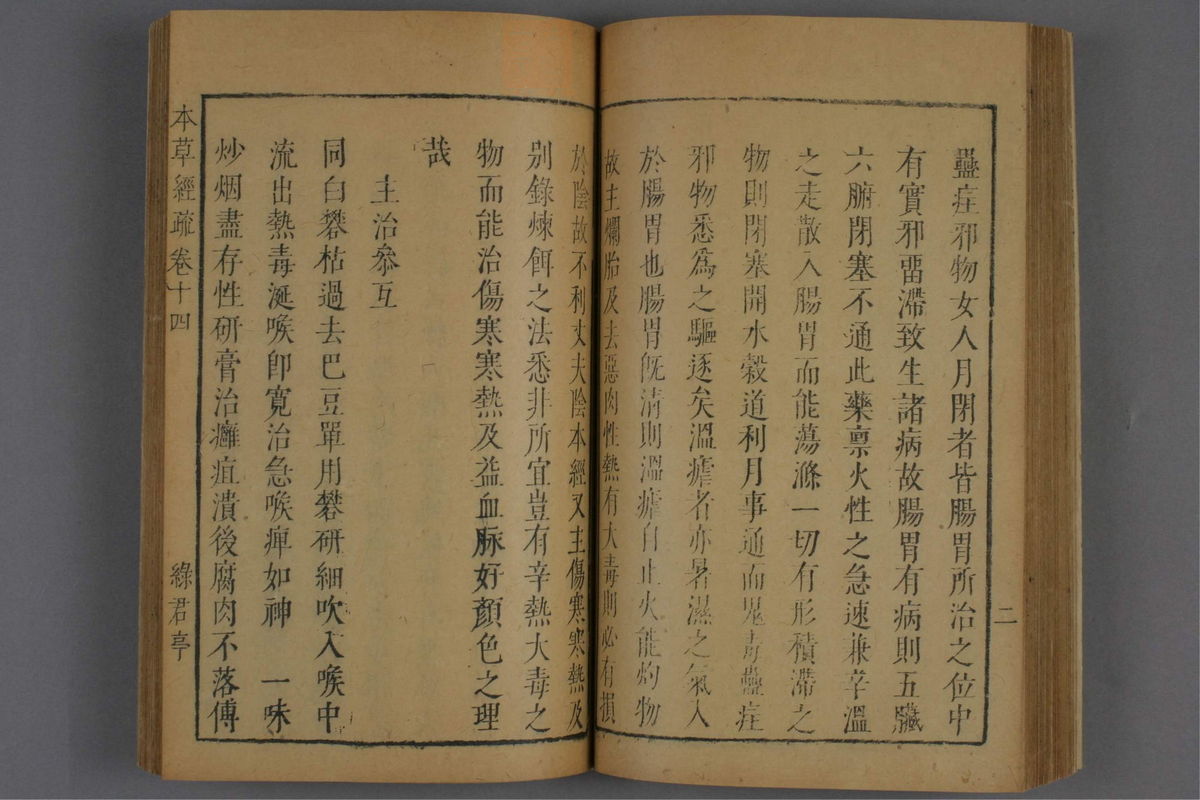 蠱疰邪物女人月閉者皆腸胃所治之位中
有實邪畱滯致生諸病故腸胃有病則五臟
六腑閉塞不通此藥禀火性之急速兼辛溫
之走散入腸胃而能蕩滌一切有形積滯之
物則閉塞開水穀道利月事通而鬼毒蠱疰
邪物悉爲之驅逐矣溫瘧者亦暑濕之氣入
於腸胃也腸胃旣清則溫瘧自止火能灼物
故主爛胎及去惡肉性熱有大毒則必有損
於陰故不利丈夫陰本經又主傷寒寒熱及
别錄煉餌之法悉非所宜豈有辛熱大毒之
物而能治傷寒寒熱及益血脉好顏色之理
哉
主治叅互
同白礬枯過去巴豆單用礬研細吹入喉中
流出熱毒涎喉卽寬治急喉痺如神 一味
炒烟盡存性研膏治癰疽潰後腐肉不落傅
本草經疏 卷十四
綠君亭
二